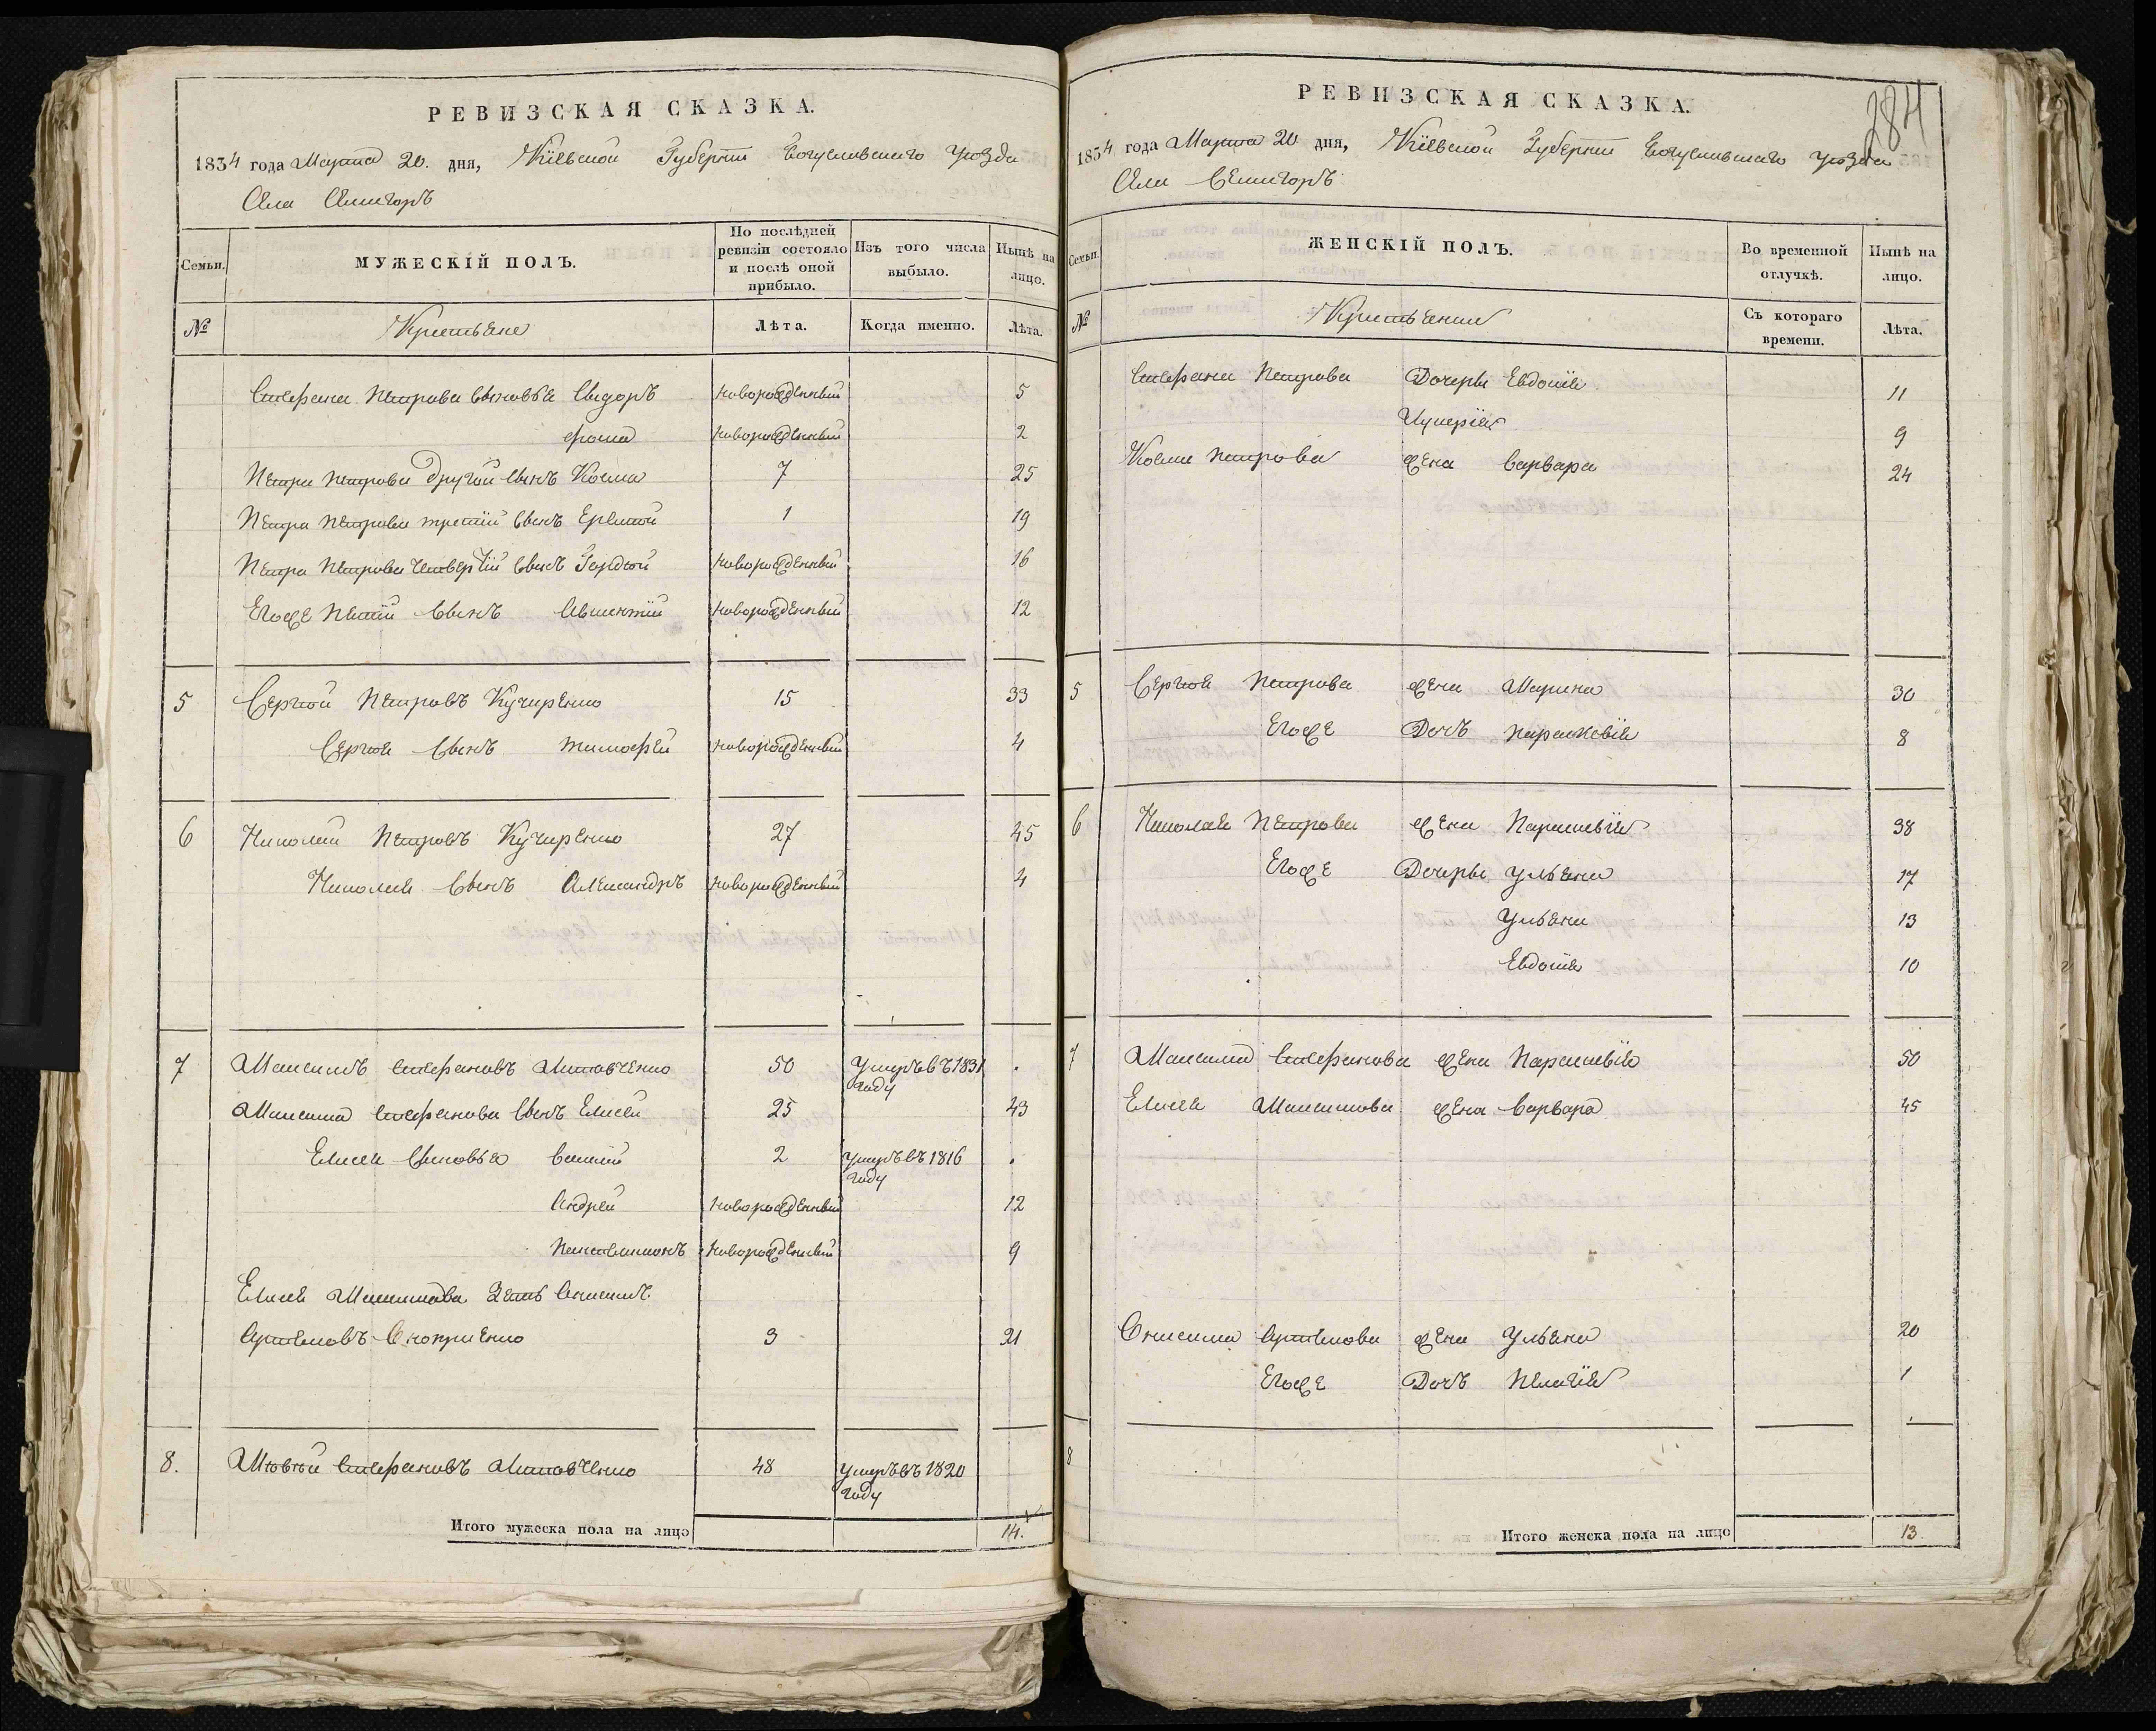 РЕВИЗСКАЯ СКАЗКА.
1834 года Марта 20. дня, Кіевской Губерніи Богуславскаго уѣзда
Села Селигоръ
Семьи. МУЖЕСКІЙ ПОЛЪ. По послѣдней ревизіи состояло и послѣ оной прибыло. Изъ того числа выбыло. Нынѣ на лицо.
№ Крестьяне Лѣта. Когда именно. Лѣта.
Стефана Петрова сыновья Сидоръ новорожденный 5
Фома новорожденный 2
Петра Петрова другой сынъ Косма 7 25
Петра Петрова третій сынъ 1 19
Петра Петрова четвертій сынъ Гордѣй новорожденный 16
Егоже пятій сынъ Авксентій новорожденный 12
5 Сергѣй Петровъ Кучеренко 15 33
Сергѣя сынъ Тимофей новорожденный 4
6 Николай Петровъ Кучеренко 27 45
Николая сынъ Александръ новорожденный 4
7 Максимъ Стефановъ 50 умеръ въ 1831 году .
Максима Стефанова сынъ Елисей 25 43
Елисея сыновья 2 умеръ въ 1816 году .
Андрей новорожденный 12
Пантелимонъ новорожденный 9
Елисея Максимова зять Онисимъ
Артемовъ 3 21
8. Стефановъ 48 умеръ въ 1820 году
Итого мужеска пола на лицо 14.
284
РЕВИЗСКАЯ СКАЗКА.
1834 года Марта 20 дня, Кіевской Губерніи Богуславскаго уѣзда
Села Селигоръ
Семьи. ЖЕНСКІЙ ПОЛЪ. Во временной отлучкѣ. Нынѣ на лицо.
№ Съ котораго времени. Лѣта.
Стефана Петрова Дочеры Евдокія 11
9
Космы Петрова жена Варвара 24
5 Сергѣя Петрова жена Марина 30
Егоже Дочь Параскевія 8
6 Николая Петрова жена Параскевія 38
Егоже Дочеры Ульяна 17
Ульяна 13
Евдокія 10
7 Максима Стефанова жена Параскевія 50
Елисея Максимова жена Варвара 45
Онисима Артемова жена Ульяна 20
Егоже Дочь Пелагія 1
8
Итого женска пола на лицо 13.